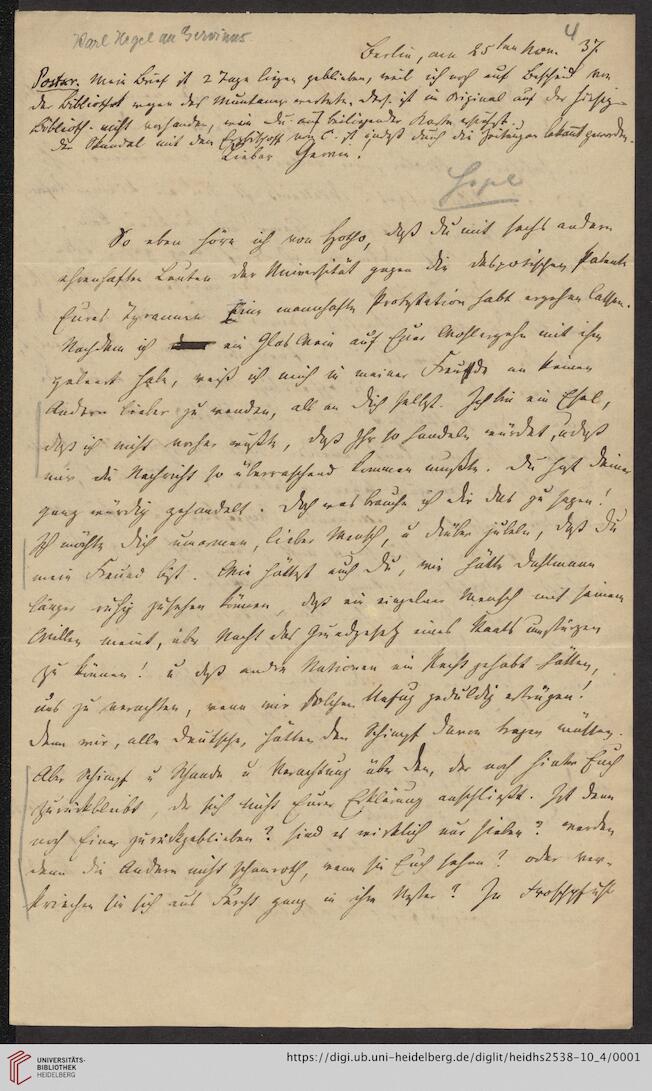 Karl Hegel an Gervinus
4
Berlin, den 25sten Nov. 37.
Postscr. Mein Brief ist 2 Tage liegen geblieben, weil ich noch auf Bescheid von
der Bibliothek wegen des Muntaner wartete. Ders. ist im Original auf der hiesigen
Biblioth. nicht vorhanden, wie du aus beiliegender Karte ersiehst.
Der Skandal mit dem Erzbischoff von C. ist indeß durch die Zeitungen bekannt geworden.
Lieber Gervin.
Hegel
So eben höre ich von Hotho, daß du mit sechs andern
ehrenhaften Leuten der Universität gegen die despotischen Patente
Eures Tyrannen Eine mannhafte Protestation habt ergehen lassen.
Nachdem ich ein Glas Wein auf Euer Wohlergehn mit ihm
geleert habe, weiß ich mich in meiner Freude an keinen
Andern lieber zu wenden, als an dich selbst. Ich bin ein Esel,
daß ich nicht vorher wußte, daß Ihr so handeln würdet, u. daß
mir die Nachricht so überraschend kommen mußte. Du hast Deiner
ganz würdig gehandelt. Doch was brauche ich dir das zu sagen!
Ich möchte dich umarmen, lieber Mensch, u darüber jubeln, daß du
mein Freund bist. Wie hättest auch du, wie hätte Dahlmann
länger ruhig zusehen können, daß ein einzelner Mensch mit seinem
Willen meint, über Nacht das Grundgesetz eines Staats umstürzen
zu können! u daß andre Nationen ein Recht gehabt hätten,
uns zu verachten, wenn wir solchen Unfug geduldig ertrügen!
Denn wir, alle Deutsche, hätten den Schimpf davon tragen müssen.
Aber Schimpf u Schande u Verachtung über den, der noch hinter Euch
zurückbleibt, der sich nicht Eurer Erklärung anschließt. Ist denn
noch Einer zurückgeblieben? sind es wirklich nur sieben? werden
denn die Andern nicht schamroth, wenn sie Euch sehen? oder ver-
kriechen sie sich aus Furcht ganz in ihre Nester? In
UNIVERSITÄTS-
BIBLIOTHEK
HEIDELBERG
https://digi.ub.uni-heidelberg.de/diglit/heidhs2538-10_4/0001